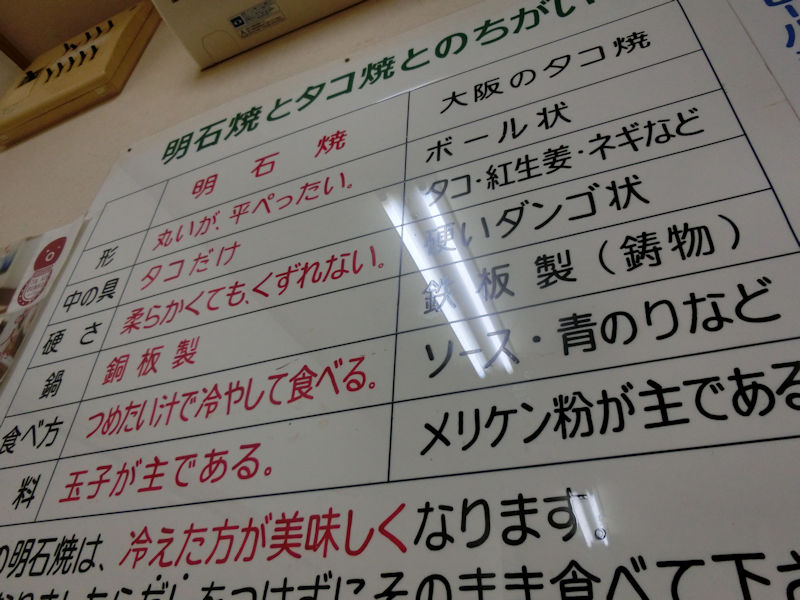 明石焼とタコ焼とのちがい
明石焼 大阪のタコ焼
形 丸いが、平べったい。 ボール状
中の具 タコだけ タコ・紅生姜・ネギなど
硬さ 柔らかくても、くずれない。 硬いダンゴ状
鍋 銅板製 鉄板製(鋳物)
食べ方 つめたい汁で冷やして食べる。 ソース・青のりなど
料 玉子が主である。 メリケン粉が主である
の明石焼は、冷えた方が美味しくなります。
なりましたらだしをつけずにそのまま食べて下さ